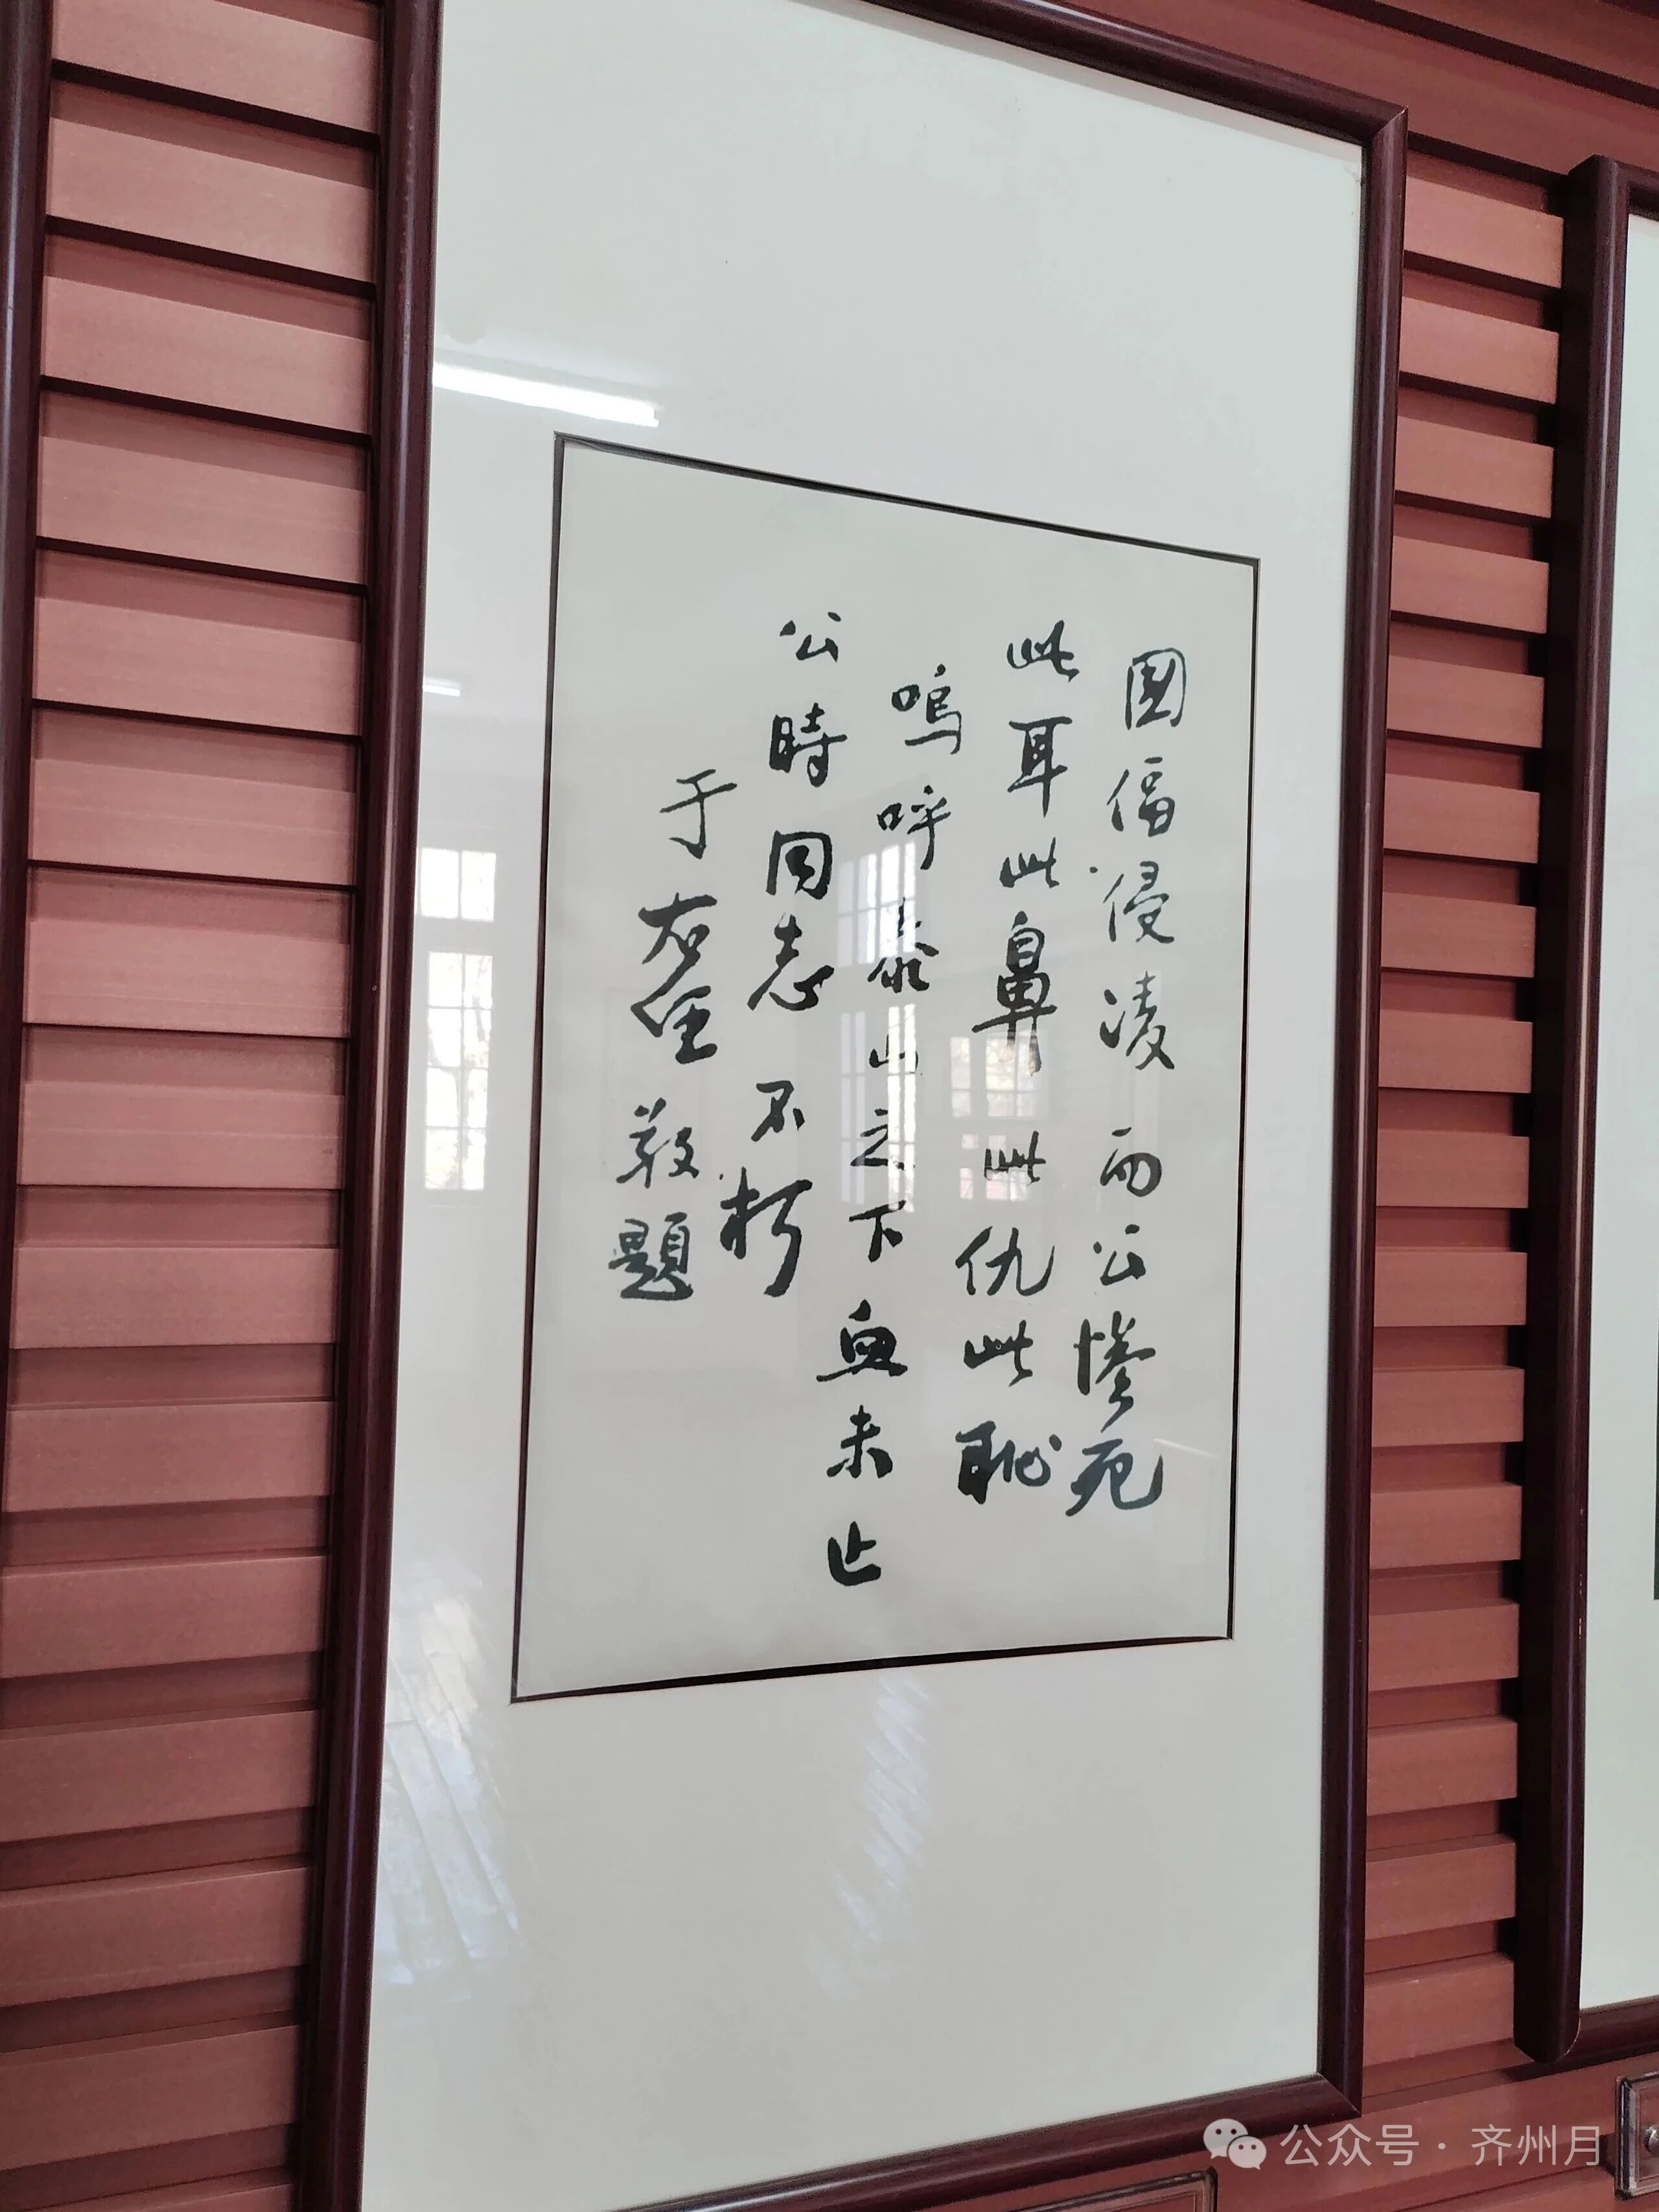 國倡侵凌而公慘死
此耳此鼻此仇此恥
嗚呼泰山之下血未止
公時同志不朽
于右任敬題
公众号·齐州月